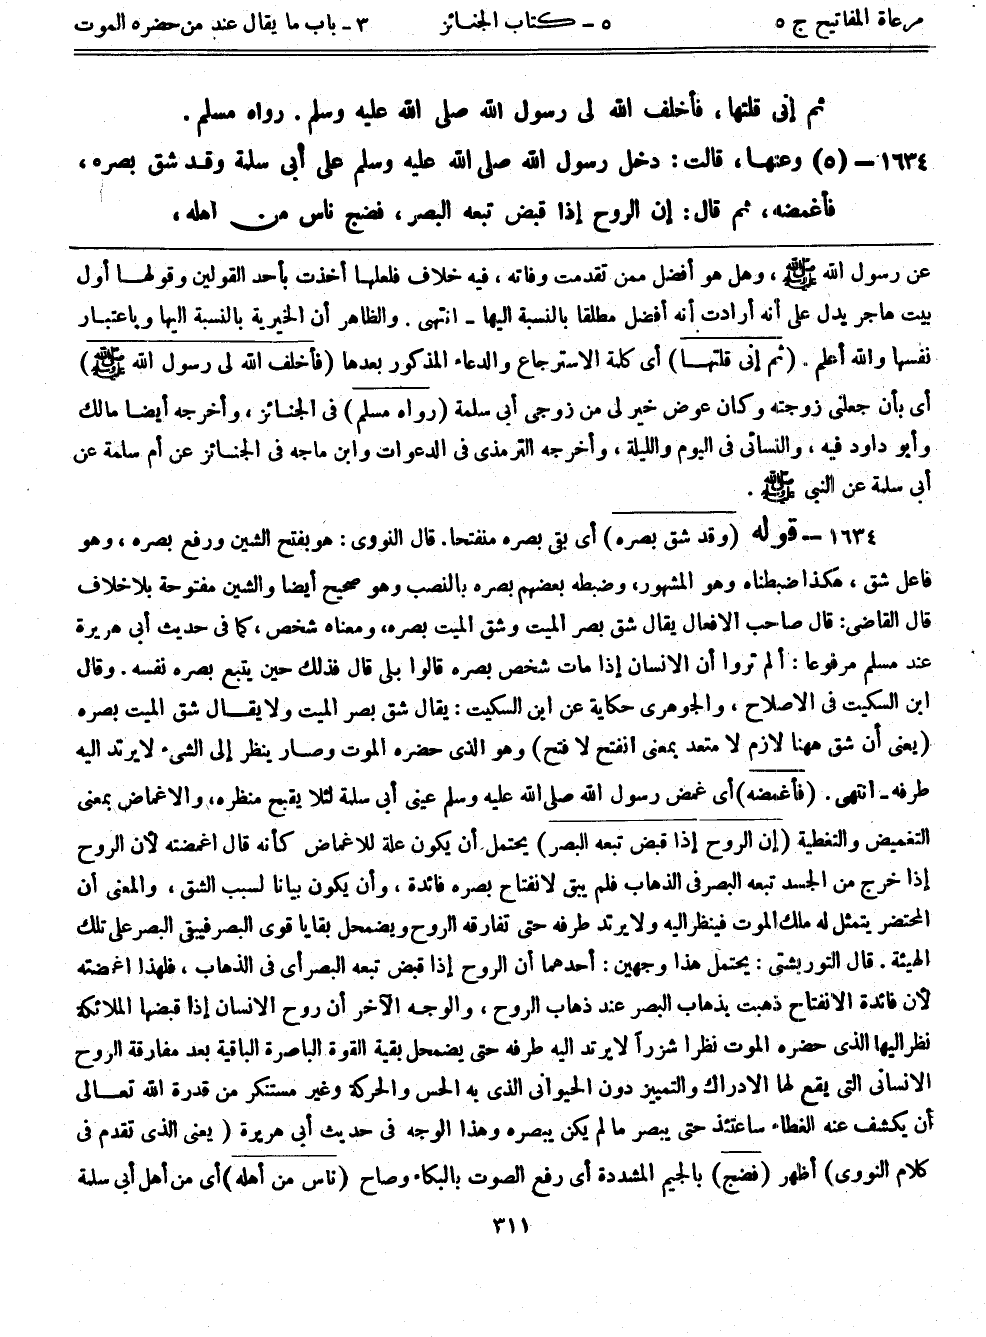 مرعاة المفاتيح ج ٥ ٥ ـ كتاب الجنائز ٣ ـ باب ما يقال عند من حضره الموت
ثم إنى قلتها، فأخلف الله لى رسول الله صلى الله عليه وسلم. رواه مسلم.
١٦٣٤ – (٥) وعنها، قالت: دخل رسول الله صلى الله عليه وسلم على أبى سلمة وقد شق بصره،
فأغمضه، ثم قال: إن الروح إذا قبض تبعه البصر، فضج ناس من اهله،
عن رسول الله ﷺ، وهل هو أفضل ممن تقدمت وفاته، فيه خلاف فلعلها أخذت بأحد القولين وقولها أول
بيت هاجر يدل على أنه أرادت أنه أفضل مطلقا بالنسبة اليها ـ انتهى. والظاهر أن الخيرية بالنسبة اليها وباعتبار
نفسها والله أعلم. (ثم إنى قلتها) أى كلمة الاسترجاع والدعاء المذكور بعدها (فأخلف الله لى رسول الله ﷺ)
أى بأن جعلنى زوجته وكان عوض خير لى من زوجى أبى سلمة (رواه مسلم) فى الجنائز، وأخرجه أيضا مالك
وأبو داود فيه، والنسائى فى اليوم والليلة، وأخرجه الترمذى فى الدعوات وابن ماجه فى الجنائز عن أم سلمة عن
أبى سلمة عن النبى ﷺ.
١٦٣٤ – قوله (وقد شق بصره) أى بقى بصره منفتحا. قال النووى: هو بفتح الشين ورفع بصره، وهو
فاعل شق، هكذا ضبطناه وهو المشهور، وضبطه بعضهم بصره بالنصب وهو صحيح أيضا والشين مفتوحة بلاخلاف
قال القاضى: قال صاحب الافعال يقال شق بصر الميت وشق الميت بصره، ومعناه شخص، كما فى حديث أبى هريرة
عند مسلم مرفوعا: ألم تروا أن الانسان إذا مات شخص بصره قالوا بلى قال فذلك حين يتبع بصره نفسه. وقال
ابن السكيت فى الاصلاح، والجوهرى حكاية عن ابن السكيت: يقال شق بصر الميت ولايقال شق الميت بصره
(يعنى أن شق ههنا لازم لا متعد بمعنى انفتح لا فتح) وهو الذى حضره الموت وصار ينظر إلى الشىء لايرتد اليه
طرفه ـ انتهى. (فأغمضه) أى غمض رسول الله صلى الله عليه وسلم عينى أبى سلمة لئلا يقبح منظره، والاغماض بمعنى
التغميض والتغطية (إن الروح إذا قبض تبعه البصر) يحتمل أن يكون علة للاغماض كأنه قال اغمضته لأن الروح
إذا خرج من الجسد تبعه البصر فى الذهاب فلم يبق لانفتاح بصره فائدة، وأن يكون بيانا لسبب الشق، والمعنى أن
المحتضر يتمثل له ملك الموت فينظر اليه ولايرتد طرفه حتى تفارقه الروح ويضمحل بقايا قوى البصر فيبقى البصر على تلك
الهيئة. قال التوربشتى: يحتمل هذا وجهين: أحدهما أن الروح إذا قبض تبعه البصر أى فى الذهاب، فلهذا اغمضته
لأن فائدة الانفتاح ذهبت بذهاب البصر عند ذهاب الروح، والوجه الآخر أن روح الانسان إذا قبضها الملائكة
نظر اليها الذى حضره الموت نظرا شزراً لايرتد اليه طرفه حتى يضمحل بقية القوة الباصرة الباقية بعد مفارقة الروح
الانسانى التى يقع لها الادراك والتمييز دون الحيوانى الذى به الحس والحركة وغير مستنكر من قدرة الله تعالى
أن يكشف عنه الغطاء ساعتئذ حتى يبصر مالم يكن يبصره وهذا الوجه فى حديث أبى هريرة (يعنى الذى تقدم فى
كلام النووى) أظهر (فضج) بالجيم المشددة أى رفع الصوت بالبكاء وصاح (ناس من أهله) أى من أهل أبى سلمة
٣١١